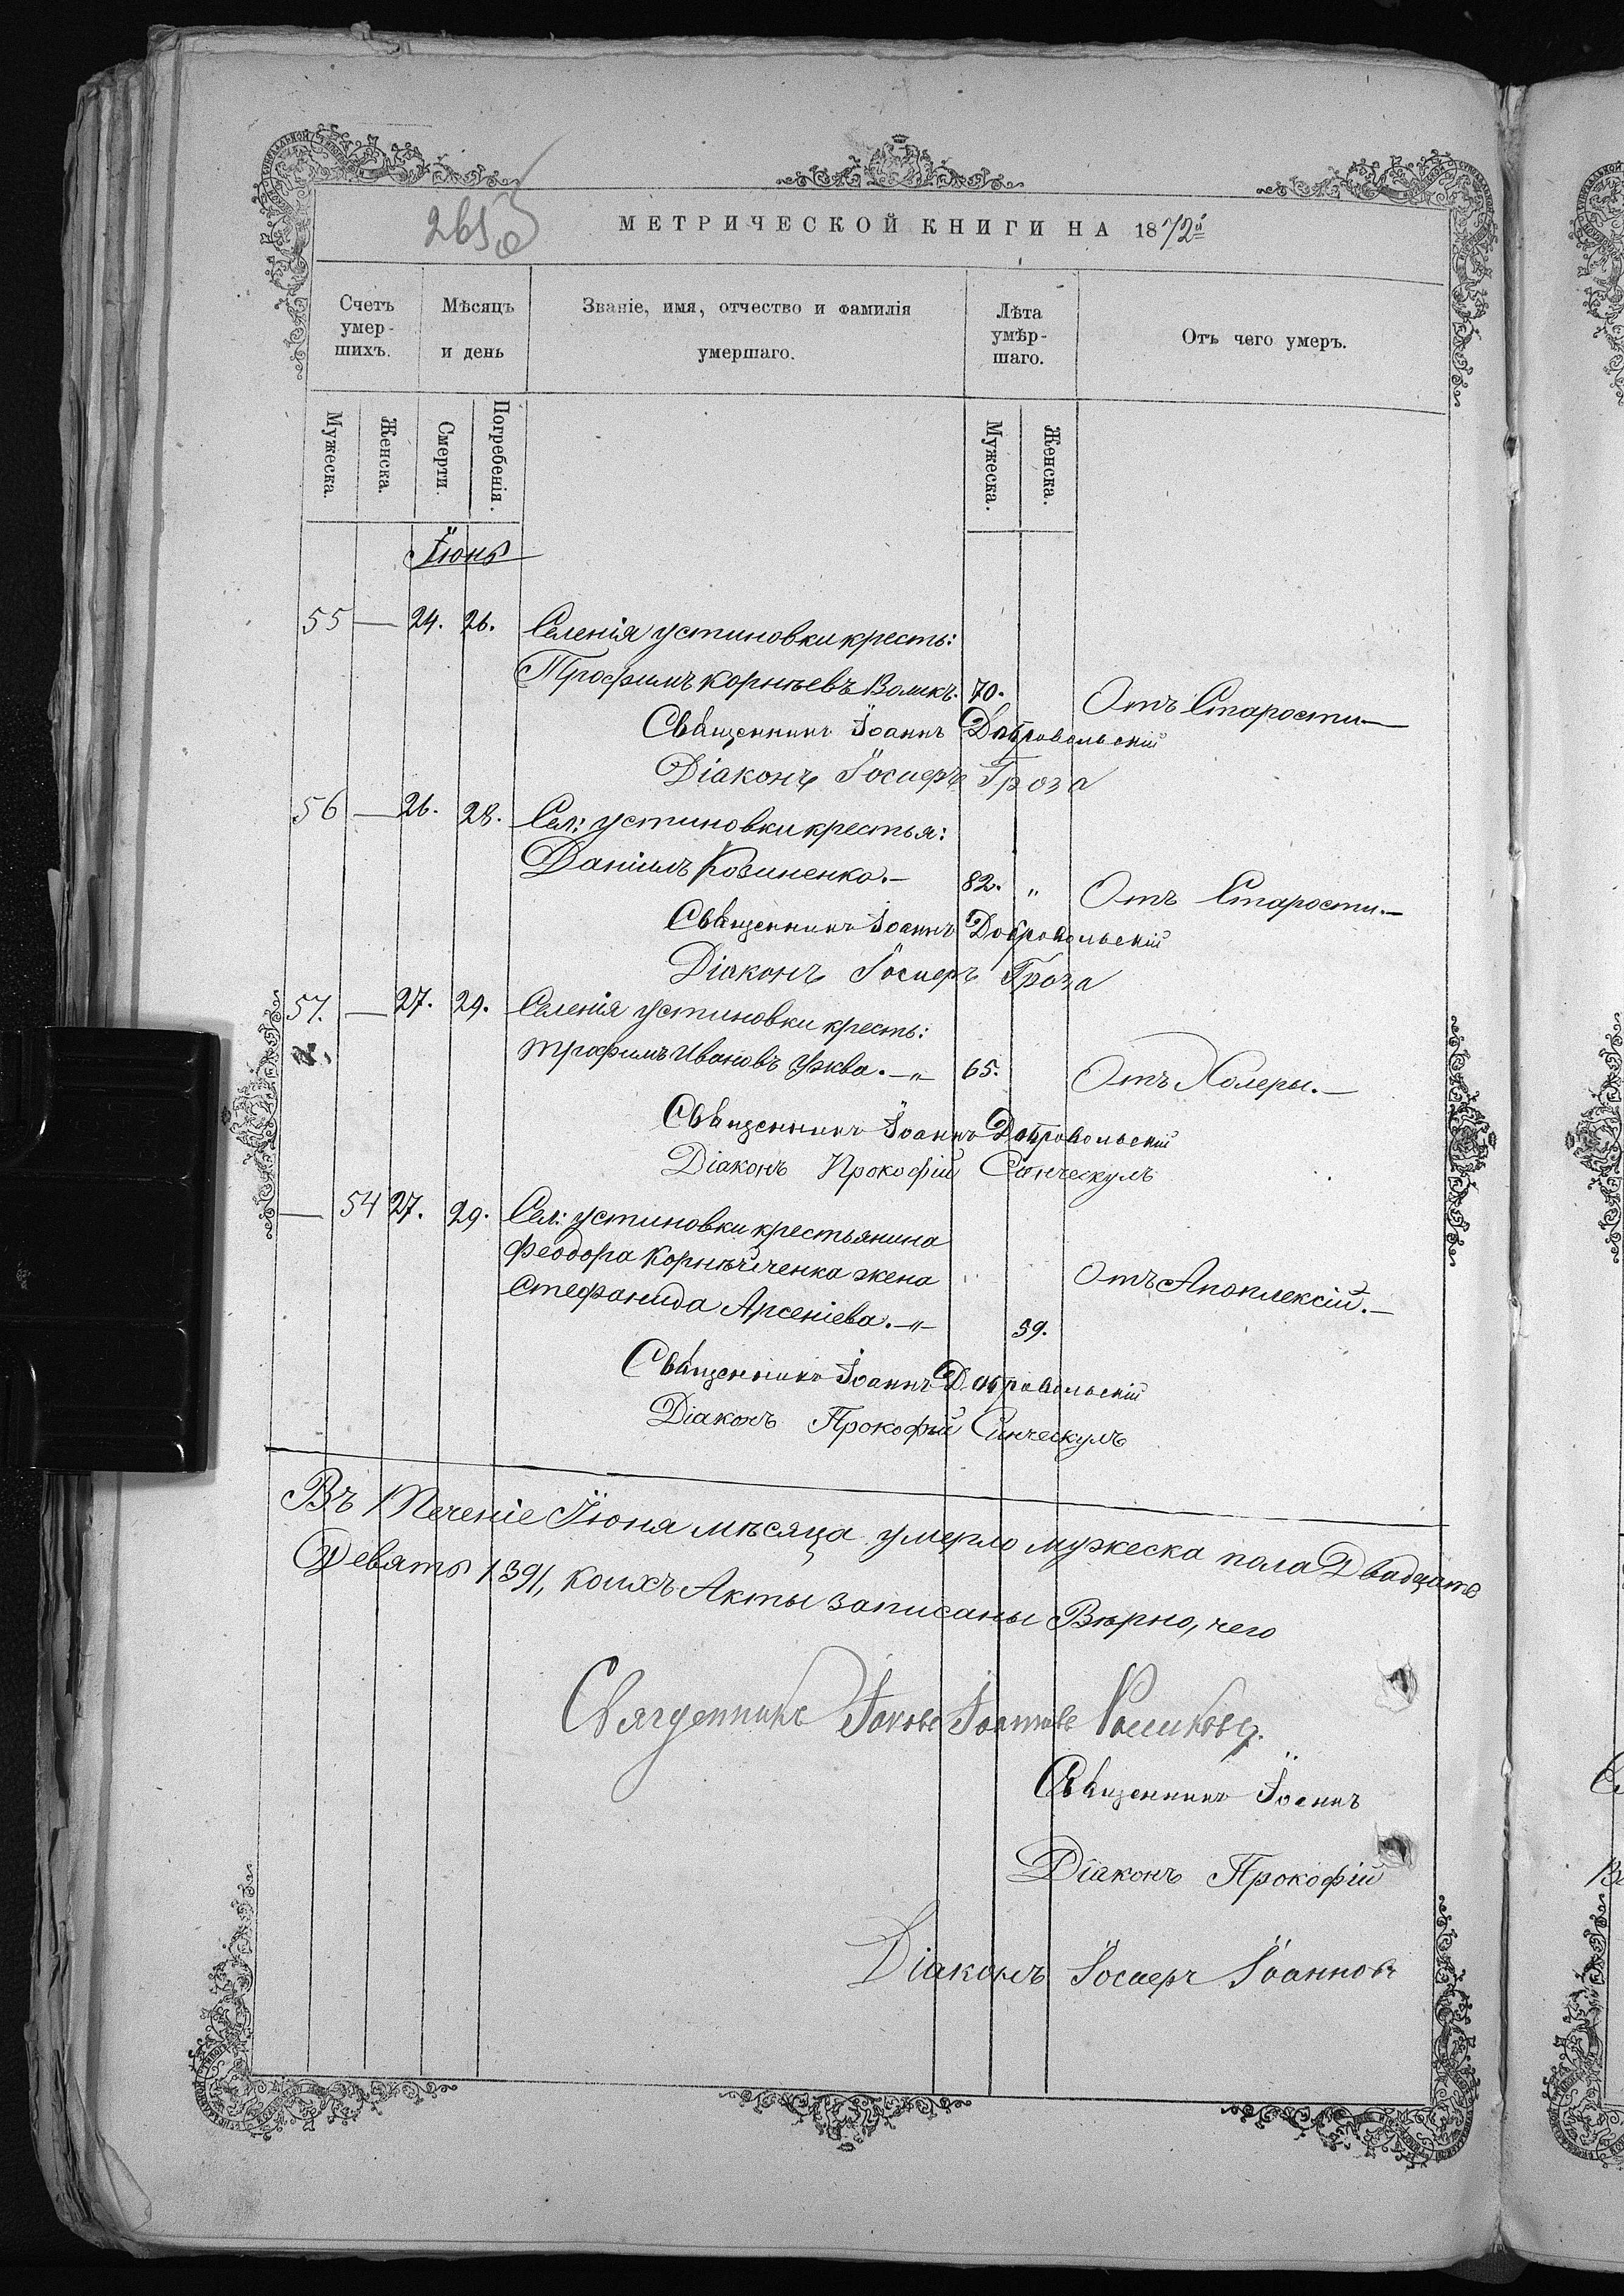 МЕТРИЧЕСКОЙ КНИГИ НА 1872й
Счетъ умер-шихъ.
Мѣсяцъ и день
Званіе, имя, отчество и фамилія умершаго.
Лѣта умѣр-шаго.
Отъ чего умеръ.
Мужеска. Женска. Смерти. Погребенія. Мужеска. Женска.
Іюнь
55 — 24. 26. Селенія устиновки кресть:
Трофимъ Корнѣевъ Воликъ. 70. Отъ Старости
Священникъ Іоаннъ Добровольскій
Діаконъ Іосиеръ Гроза
56 — 26. 28. Сел: устиновки крестья:
Даніилъ Козиненко.— 82. " Отъ Старости.—
Священникъ Іоаннъ Добровольскій
Діаконъ Іосиеръ Гроза
57. — 27. 29. Селенія устиновки кресть:
Трофимъ Ивановъ Ужва. — " 65. Отъ Холеры.—
Священникъ Іоаннъ Добровольскій
Діаконъ Прокофій Синческулъ
— 54 27. 29. Сел: устиновки крестьянина
Феодора Корнѣйченка жена
Стефанида Арсеніева. — " 39. Отъ Апоплексій.—
Священникъ Іоаннъ Добровольскій
Діаконъ Прокофій Синческулъ
Въ Теченіе Іюня мѣсяца умерло мужеска пола Двадцать
Девять /39/, коихъ Акты записаны Вѣрно, чего
Священникъ Іаковъ Іоанновъ
Священникъ Іоаннъ
Діаконъ Прокофій
Діаконъ Іосиеръ Іоанновъ